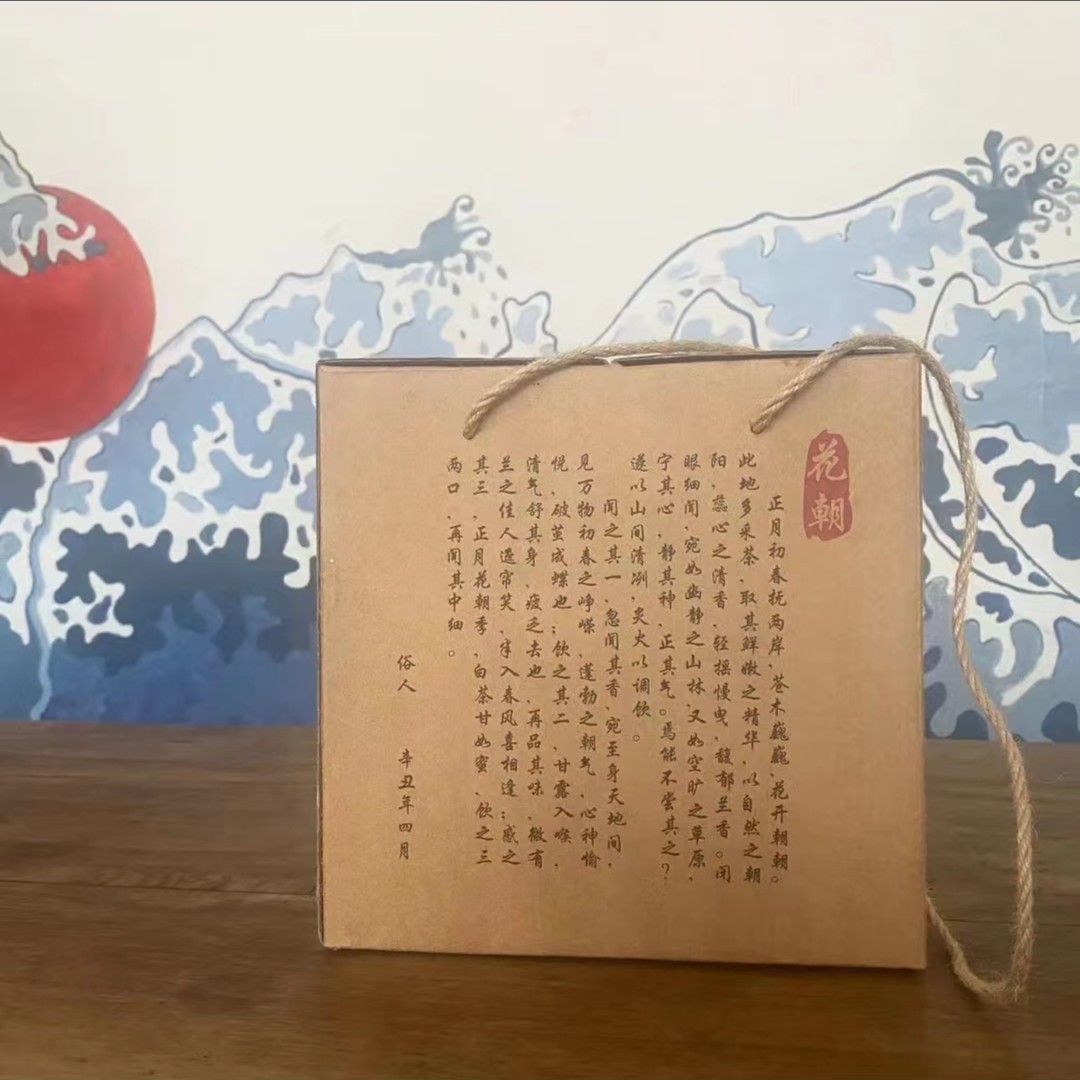 花朝
正月初春抚两岸，苍木巍巍，花开朝朝。
此地多采茶，取其鲜嫩之精华，以自然之朝
阳，蕊心之清香，轻摇慢曳，馥郁兰香。闭
眼细闻，宛如幽静之山林，又如空旷之草原，
宁其心，静其神，正其气。焉能不尝其之？
遂以山间清冽，炙火以调饮。
闻之其一，忽闻其香，宛至身天地间，
见万物初春之峥嵘，蓬勃之朝气，心神愉
悦，破茧成蝶也；饮之其二，甘露入喉，
清气舒其身，疲乏去也，再品其味，微有
兰之佳人逐帘笑，半入春风喜相逢；感之
其三，正月花朝季，白茶甘如蜜，饮之三
两口，再闻其中细。
俗人 辛丑年四月